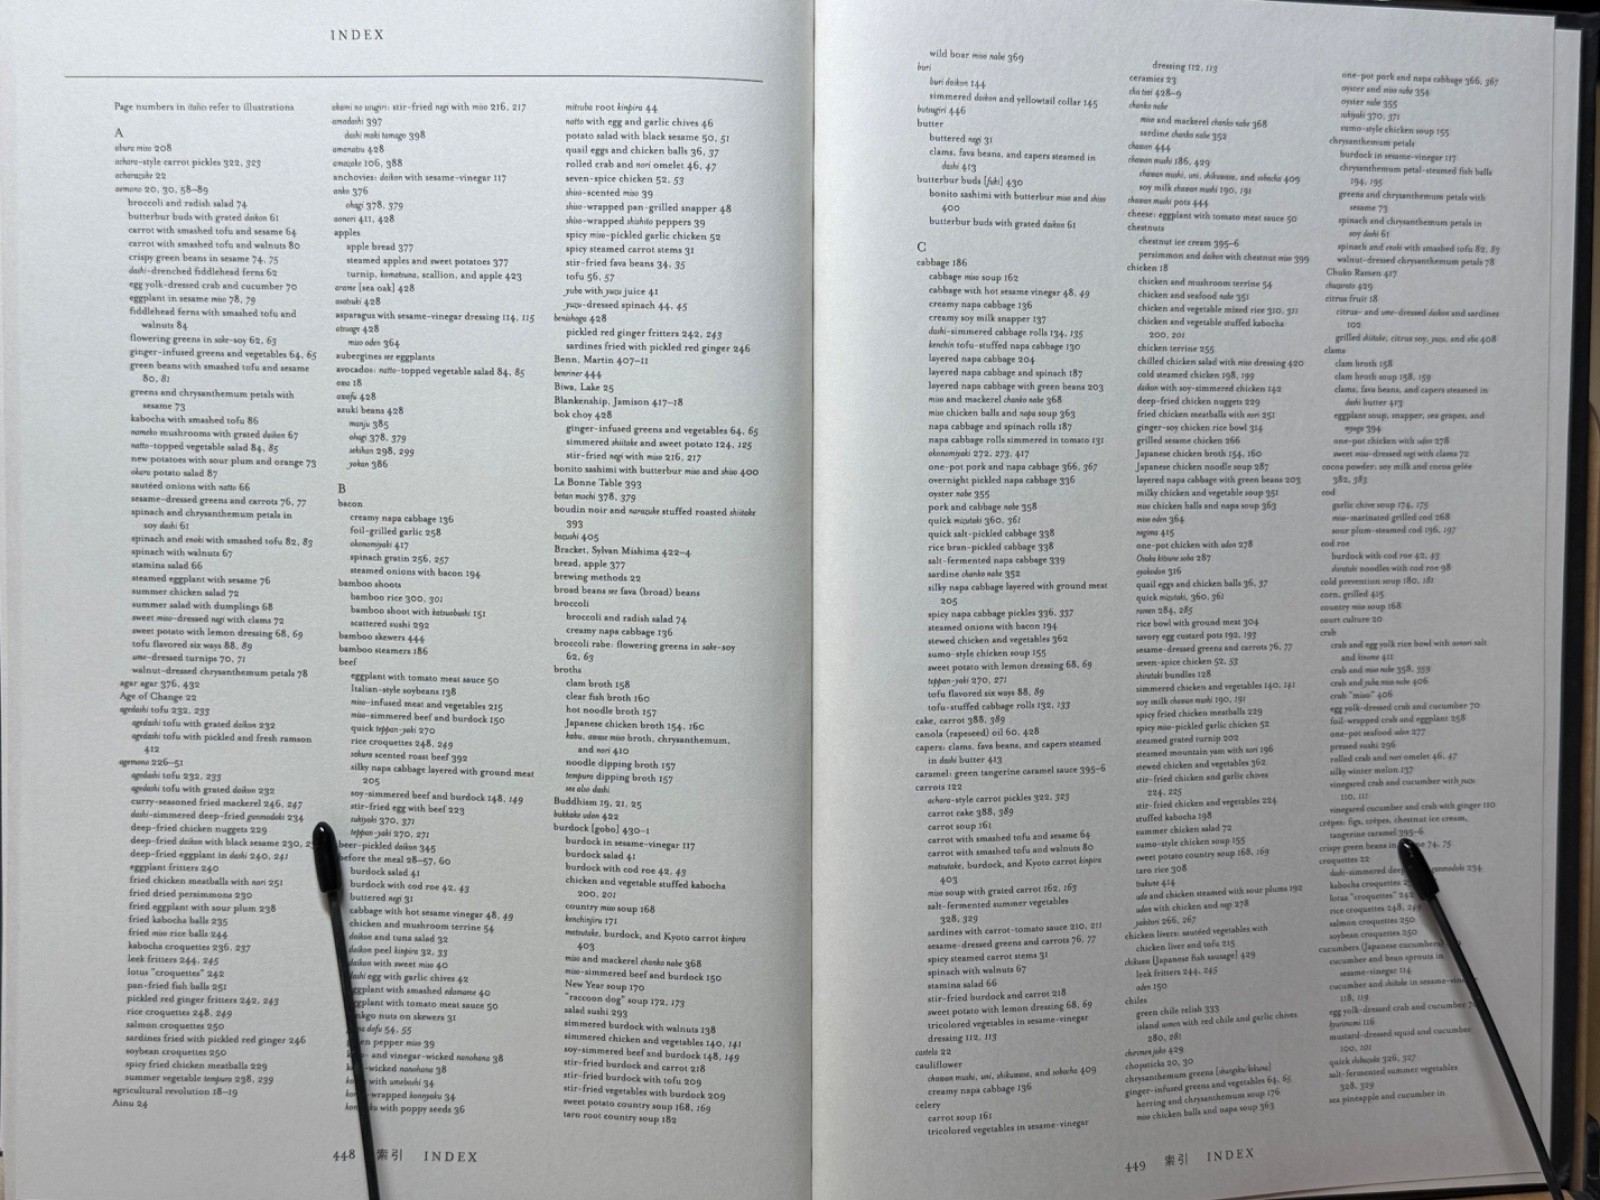 INDEX
Page numbers in italic refer to illustrations
A
abura miso 208
achara-style carrot pickles 322, 323
acharazuke 22
aemono 20, 30, 58–89
broccoli and radish salad 74
butterbur buds with grated daikon 61
carrot with smashed tofu and sesame 64
carrot with smashed tofu and walnuts 80
crispy green beans in sesame 74, 75
dashi-drenched fiddlehead ferns 62
egg yolk-dressed crab and cucumber 70
eggplant in sesame miso 78, 79
fiddlehead ferns with smashed tofu and
walnuts 84
flowering greens in sake-soy 62, 63
ginger-infused greens and vegetables 64, 65
green beans with smashed tofu and sesame
80, 81
greens and chrysanthemum petals with
sesame 73
kabocha with smashed tofu 86
nameko mushrooms with grated daikon 67
natto-topped vegetable salad 84, 85
new potatoes with sour plum and orange 73
okara potato salad 87
sautéed onions with natto 66
sesame-dressed greens and carrots 76, 77
spinach and chrysanthemum petals in
soy dashi 61
spinach and enoki with smashed tofu 82, 83
spinach with walnuts 67
stamina salad 66
steamed eggplant with sesame 76
summer chicken salad 72
summer salad with dumplings 68
sweet miso-dressed negi with clams 72
sweet potato with lemon dressing 68, 69
tofu flavored six ways 88, 89
ume-dressed turnips 70, 71
walnut-dressed chrysanthemum petals 78
agar agar 376, 432
Age of Change 22
agedashi tofu 232, 233
agedashi tofu with grated daikon 232
agedashi tofu with pickled and fresh ramson
412
agemono 226–51
agedashi tofu 232, 233
agedashi tofu with grated daikon 232
curry-seasoned fried mackerel 246, 247
dashi-simmered deep-fried ganmodoki 234
deep-fried chicken nuggets 229
deep-fried daikon with black sesame 230,
deep-fried eggplant in dashi 240, 241
eggplant fritters 240
fried chicken meatballs with nori 251
fried dried persimmons 230
fried eggplant with sour plum 238
fried kabocha balls 235
fried miso rice balls 244
kabocha croquettes 236, 237
leek fritters 244, 245
lotus "croquettes" 242
pan-fried fish balls 251
pickled red ginger fritters 242, 243
rice croquettes 248, 249
salmon croquettes 250
sardines fried with pickled red ginger 246
soybean croquettes 250
spicy fried chicken meatballs 229
summer vegetable tempura 238, 239
agricultural revolution 18–19
Ainu 24
akami no unagiri: stir-fried negi with miso 216, 217
amadashi 397
dashi maki tamago 398
amanatsu 428
amazake 106, 388
anchovies: daikon with sesame-vinegar 117
anko 376
ohagi 378, 379
aonori 411, 428
apples
apple bread 377
steamed apples and sweet potatoes 377
turnip, komatsuna, scallion, and apple 423
arame [sea oak] 428
asatsuki 428
asparagus with sesame-vinegar dressing 114, 115
atsuage 428
miso oden 364
aubergines see eggplants
avocados: natto-topped vegetable salad 84, 85
awa 18
awafu 428
azuki beans 428
manju 385
ohagi 378, 379
sekihan 298, 299
yokan 386
B
bacon
creamy napa cabbage 136
foil-grilled garlic 258
okonomiyaki 417
spinach gratin 256, 257
steamed onions with bacon 194
bamboo shoots
bamboo rice 300, 301
bamboo shoot with katsuobushi 151
scattered sushi 292
bamboo skewers 444
bamboo steamers 186
beef
eggplant with tomato meat sauce 50
Italian-style soybeans 138
miso-infused meat and vegetables 215
miso-simmered beef and burdock 150
quick teppan-yaki 270
rice croquettes 248, 249
sakura scented roast beef 392
silky napa cabbage layered with ground meat
205
soy-simmered beef and burdock 148, 149
stir-fried egg with beef 223
sukiyaki 370, 371
teppan-yaki 270, 271
beer-pickled daikon 345
before the meal 28–57, 60
burdock salad 41
burdock with cod roe 42, 43
buttered negi 31
cabbage with hot sesame vinegar 48, 49
chicken and mushroom terrine 54
daikon and tuna salad 32
daikon peel kinpira 32, 33
daikon with sweet miso 40
dashi egg with garlic chives 42
eggplant with smashed edamame 40
eggplant with tomato meat sauce 50
ginkgo nuts on skewers 31
dofu 54, 55
pepper miso 39
and vinegar-wicked nanohana 38
wicked nanohana 38
with umeboshi 34
wrapped konnyaku 34
with poppy seeds 36
mitsuba root kinpira 44
natto with egg and garlic chives 46
potato salad with black sesame 50, 51
quail eggs and chicken balls 36, 37
rolled crab and nori omelet 46, 47
seven-spice chicken 52, 53
shiso-scented miso 39
shiso-wrapped pan-grilled snapper 48
shiso-wrapped shishito peppers 39
spicy miso-pickled garlic chicken 52
spicy steamed carrot stems 31
stir-fried fava beans 34, 35
tofu 56, 57
yuba with yuzu juice 41
yuzu-dressed spinach 44, 45
benishoga 428
pickled red ginger fritters 242, 243
sardines fried with pickled red ginger 246
Benn, Martin 407–11
benriner 444
Biwa, Lake 25
Blankenship, Jamison 417–18
bok choy 428
ginger-infused greens and vegetables 64, 65
simmered shiitake and sweet potato 124, 125
stir-fried negi with miso 216, 217
bonito sashimi with butterbur miso and shiso 400
La Bonne Table 393
botan mochi 378, 379
boudin noir and narazuke stuffed roasted shiitake
393
boqushi 405
Bracket, Sylvan Mishima 422–4
bread, apple 377
brewing methods 22
broad beans see fava (broad) beans
broccoli
broccoli and radish salad 74
creamy napa cabbage 136
broccoli rabe: flowering greens in sake-soy
62, 63
broths
clam broth 158
clear fish broth 160
hot noodle broth 157
Japanese chicken broth 154, 160
kabu, awase miso broth, chrysanthemum,
and nori 410
noodle dipping broth 157
tempura dipping broth 157
see also dashi
Buddhism 19, 21, 25
bukkake udon 422
burdock [gobo] 430–1
burdock in sesame-vinegar 117
burdock salad 41
burdock with cod roe 42, 43
chicken and vegetable stuffed kabocha
200, 201
country miso soup 168
kenchinjiru 171
matsutake, burdock, and Kyoto carrot kinpira
403
miso and mackerel chanko nabe 368
miso-simmered beef and burdock 150
New Year soup 170
"raccoon dog" soup 172, 173
salad sushi 293
simmered burdock with walnuts 138
simmered chicken and vegetables 140, 141
soy-simmered beef and burdock 148, 149
stir-fried burdock and carrot 218
stir-fried burdock with tofu 209
stir-fried vegetables with burdock 209
sweet potato country soup 168, 169
taro root country soup 182
448 索引 INDEX
wild boar miso nabe 369
buri
buri daikon 144
simmered daikon and yellowtail collar 145
butsugiri 446
butter
buttered negi 31
clams, fava beans, and capers steamed in
dashi 413
butterbur buds [fuki] 430
bonito sashimi with butterbur miso and shiso
400
butterbur buds with grated daikon 61
C
cabbage 186
cabbage miso soup 162
cabbage with hot sesame vinegar 48, 49
creamy napa cabbage 136
creamy soy milk snapper 137
dashi-simmered cabbage rolls 134, 135
kenchin tofu-stuffed napa cabbage 130
layered napa cabbage 204
layered napa cabbage and spinach 187
layered napa cabbage with green beans 203
miso and mackerel chanko nabe 368
miso chicken balls and napa soup 363
napa cabbage and spinach rolls 187
napa cabbage rolls simmered in tomato 131
okonomiyaki 272, 273, 417
one-pot pork and napa cabbage 366, 367
overnight pickled napa cabbage 336
oyster nabe 355
pork and cabbage nabe 358
quick mizutaki 360, 361
quick salt-pickled cabbage 338
rice bran-pickled cabbage 338
salt-fermented napa cabbage 339
sardine chanko nabe 352
silky napa cabbage layered with ground meat
205
spicy napa cabbage pickles 336, 337
steamed onions with bacon 194
stewed chicken and vegetables 362
sumo-style chicken soup 155
sweet potato with lemon dressing 68, 69
teppan-yaki 270, 271
tofu flavored six ways 88, 89
tofu-stuffed cabbage rolls 132, 133
cake, carrot 388, 389
canola (rapeseed) oil 60, 428
capers: clams, fava beans, and capers steamed
in dashi butter 413
caramel: green tangerine caramel sauce 395–6
carrots 122
achara-style carrot pickles 322, 323
carrot cake 388, 389
carrot soup 161
carrot with smashed tofu and sesame 64
carrot with smashed tofu and walnuts 80
matsutake, burdock, and Kyoto carrot kinpira
403
miso soup with grated carrot 162, 163
salt-fermented summer vegetables
328, 329
sardines with carrot-tomato sauce 210, 211
sesame-dressed greens and carrots 76, 77
spicy steamed carrot stems 31
spinach with walnuts 67
stamina salad 66
stir-fried burdock and carrot 218
sweet potato with lemon dressing 68, 69
tricolored vegetables in sesame-vinegar
dressing 112, 113
castela 22
cauliflower
chawan mushi, uni, shikuwase, and sobacha 409
creamy napa cabbage 136
celery
carrot soup 161
tricolored vegetables in sesame-vinegar
dressing 112, 113
ceramics 23
cha tsei 428–9
chanko nabe
miso and mackerel chanko nabe 368
sardine chanko nabe 352
chawan 444
chawan mushi 186, 429
chawan mushi, uni, shikuwase, and sobacha 409
soy milk chawan mushi 190, 191
chawan mushi pots 444
cheese: eggplant with tomato meat sauce 50
chestnuts
chestnut ice cream 395–6
persimmon and daikon with chestnut miso 399
chicken 18
chicken and mushroom terrine 54
chicken and seafood nabe 351
chicken and vegetable mixed rice 310, 311
chicken and vegetable stuffed kabocha
200, 201
chicken terrine 255
chilled chicken salad with miso dressing 420
cold steamed chicken 198, 199
daikon with soy-simmered chicken 142
deep-fried chicken nuggets 229
fried chicken meatballs with nori 251
ginger-soy chicken rice bowl 314
grilled sesame chicken 266
Japanese chicken broth 154, 160
Japanese chicken noodle soup 287
layered napa cabbage with green beans 203
milky chicken and vegetable soup 351
miso chicken balls and napa soup 363
miso oden 364
negima 415
one-pot chicken with udon 278
Osaka kitsune soba 287
oyakodon 316
quail eggs and chicken balls 36, 37
quick mizutaki, 360, 361
ramen 284, 285
rice bowl with ground meat 304
savory egg custard pots 192, 193
sesame-dressed greens and carrots 76, 77
seven-spice chicken 52, 53
shirataki bundles 128
simmered chicken and vegetables 140, 141
soy milk chawan mushi 190, 191
spicy fried chicken meatballs 229
spicy miso-pickled garlic chicken 52
steamed grated turnip 202
steamed mountain yam with nori 196
stewed chicken and vegetables 362
stir-fried chicken and garlic chives
224, 225
stir-fried chicken and vegetables 224
stuffed kabocha 198
summer chicken salad 72
sumo-style chicken soup 155
sweet potato country soup 168, 169
taro rice 308
tsukune 414
udo and chicken steamed with sour plums 192
udon with chicken and negi 278
yakitori 266, 267
chicken livers: sautéed vegetables with
chicken liver and tofu 215
chikuwa [Japanese fish sausage] 429
leek fritters 244, 245
oden 150
chiles
green chile relish 333
island somen with red chile and garlic chives
280, 281
chirimen jako 429
chopsticks 20, 30
chrysanthemum greens [shungiku/kikuna]
ginger-infused greens and vegetables 64, 65
herring and chrysanthemum soup 176
miso chicken balls and napa soup 363
one-pot pork and napa cabbage 366, 367
oyster and miso nabe 354
oyster nabe 355
sukiyaki 370, 371
sumo-style chicken soup 155
chrysanthemum petals
burdock in sesame-vinegar 117
chrysanthemum petal-steamed fish balls
194, 195
greens and chrysanthemum petals with
sesame 73
spinach and chrysanthemum petals in
soy dashi 61
spinach and enoki with smashed tofu 82, 83
walnut-dressed chrysanthemum petals 78
Chuko Ramen 417
429
citrus fruit 18
citrus- and ume-dressed daikon and sardines
102
grilled shiitake, citrus soy, yuzu, and olie 408
clams
clam broth 158
clam broth soup 158, 159
clams, fava beans, and capers steamed in
dashi butter 413
eggplant soup, snapper, sea grapes, and
394
one-pot chicken with udon 278
sweet miso-dressed negi with clams 72
cocoa powder: soy milk and cocoa gelée
382, 383
cod
garlic chive soup 174, 175
miso-marinated grilled cod 268
sour plum-steamed cod 196, 197
cod roe
burdock with cod roe 42, 43
shirataki noodles with cod roe 98
cold prevention soup 180, 181
corn, grilled 415
country miso soup 168
court culture 20
crab
crab and egg yolk rice bowl with salt
and kinome 411
crab and miso nabe 358, 359
crab and yuba miso nabe 406
crab "miso" 406
egg yolk-dressed crab and cucumber 70
foil-wrapped crab and eggplant 258
one-pot seafood udon 277
pressed sushi 296
rolled crab and nori omelet 46, 47
silky winter melon 137
vinegared crab and cucumber with yuzu
110, 111
vinegared cucumber and crab with ginger 110
crêpes: figs, crêpes, chestnut ice cream,
tangerine caramel 395–6
crispy green beans in 74, 75
croquettes 22
dashi-simmered 234
kabocha croquettes
lotus "croquettes" 242
rice croquettes 248,
salmon croquettes 250
soybean croquettes 250
cucumbers (Japanese cucumbers)
cucumber and bean sprouts in
sesame-vinegar 114
cucumber and shiitake in sesame-
118, 119
egg yolk-dressed crab and cucumber
kyurimomi 116
mustard-dressed squid and cucumber
100, 101
quick shibazuke 326, 327
salt-fermented summer vegetables
328, 329
sea pineapple and cucumber in
449 索引 INDEX